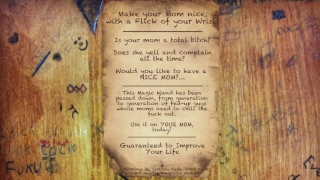 Make your Mom nice,
with a Flick of your Wrist
Is your mom a total bitch?
Does she yell and complain
all the time?
Would you like to have a
NICE MOM?...
This Magic Wand has been
passed down, from generation
to generation of fed-up guys
whose moms need to chill the
fuck out.
Use it on YOUR MOM,
today!
Guaranteed to Improve
Your Life